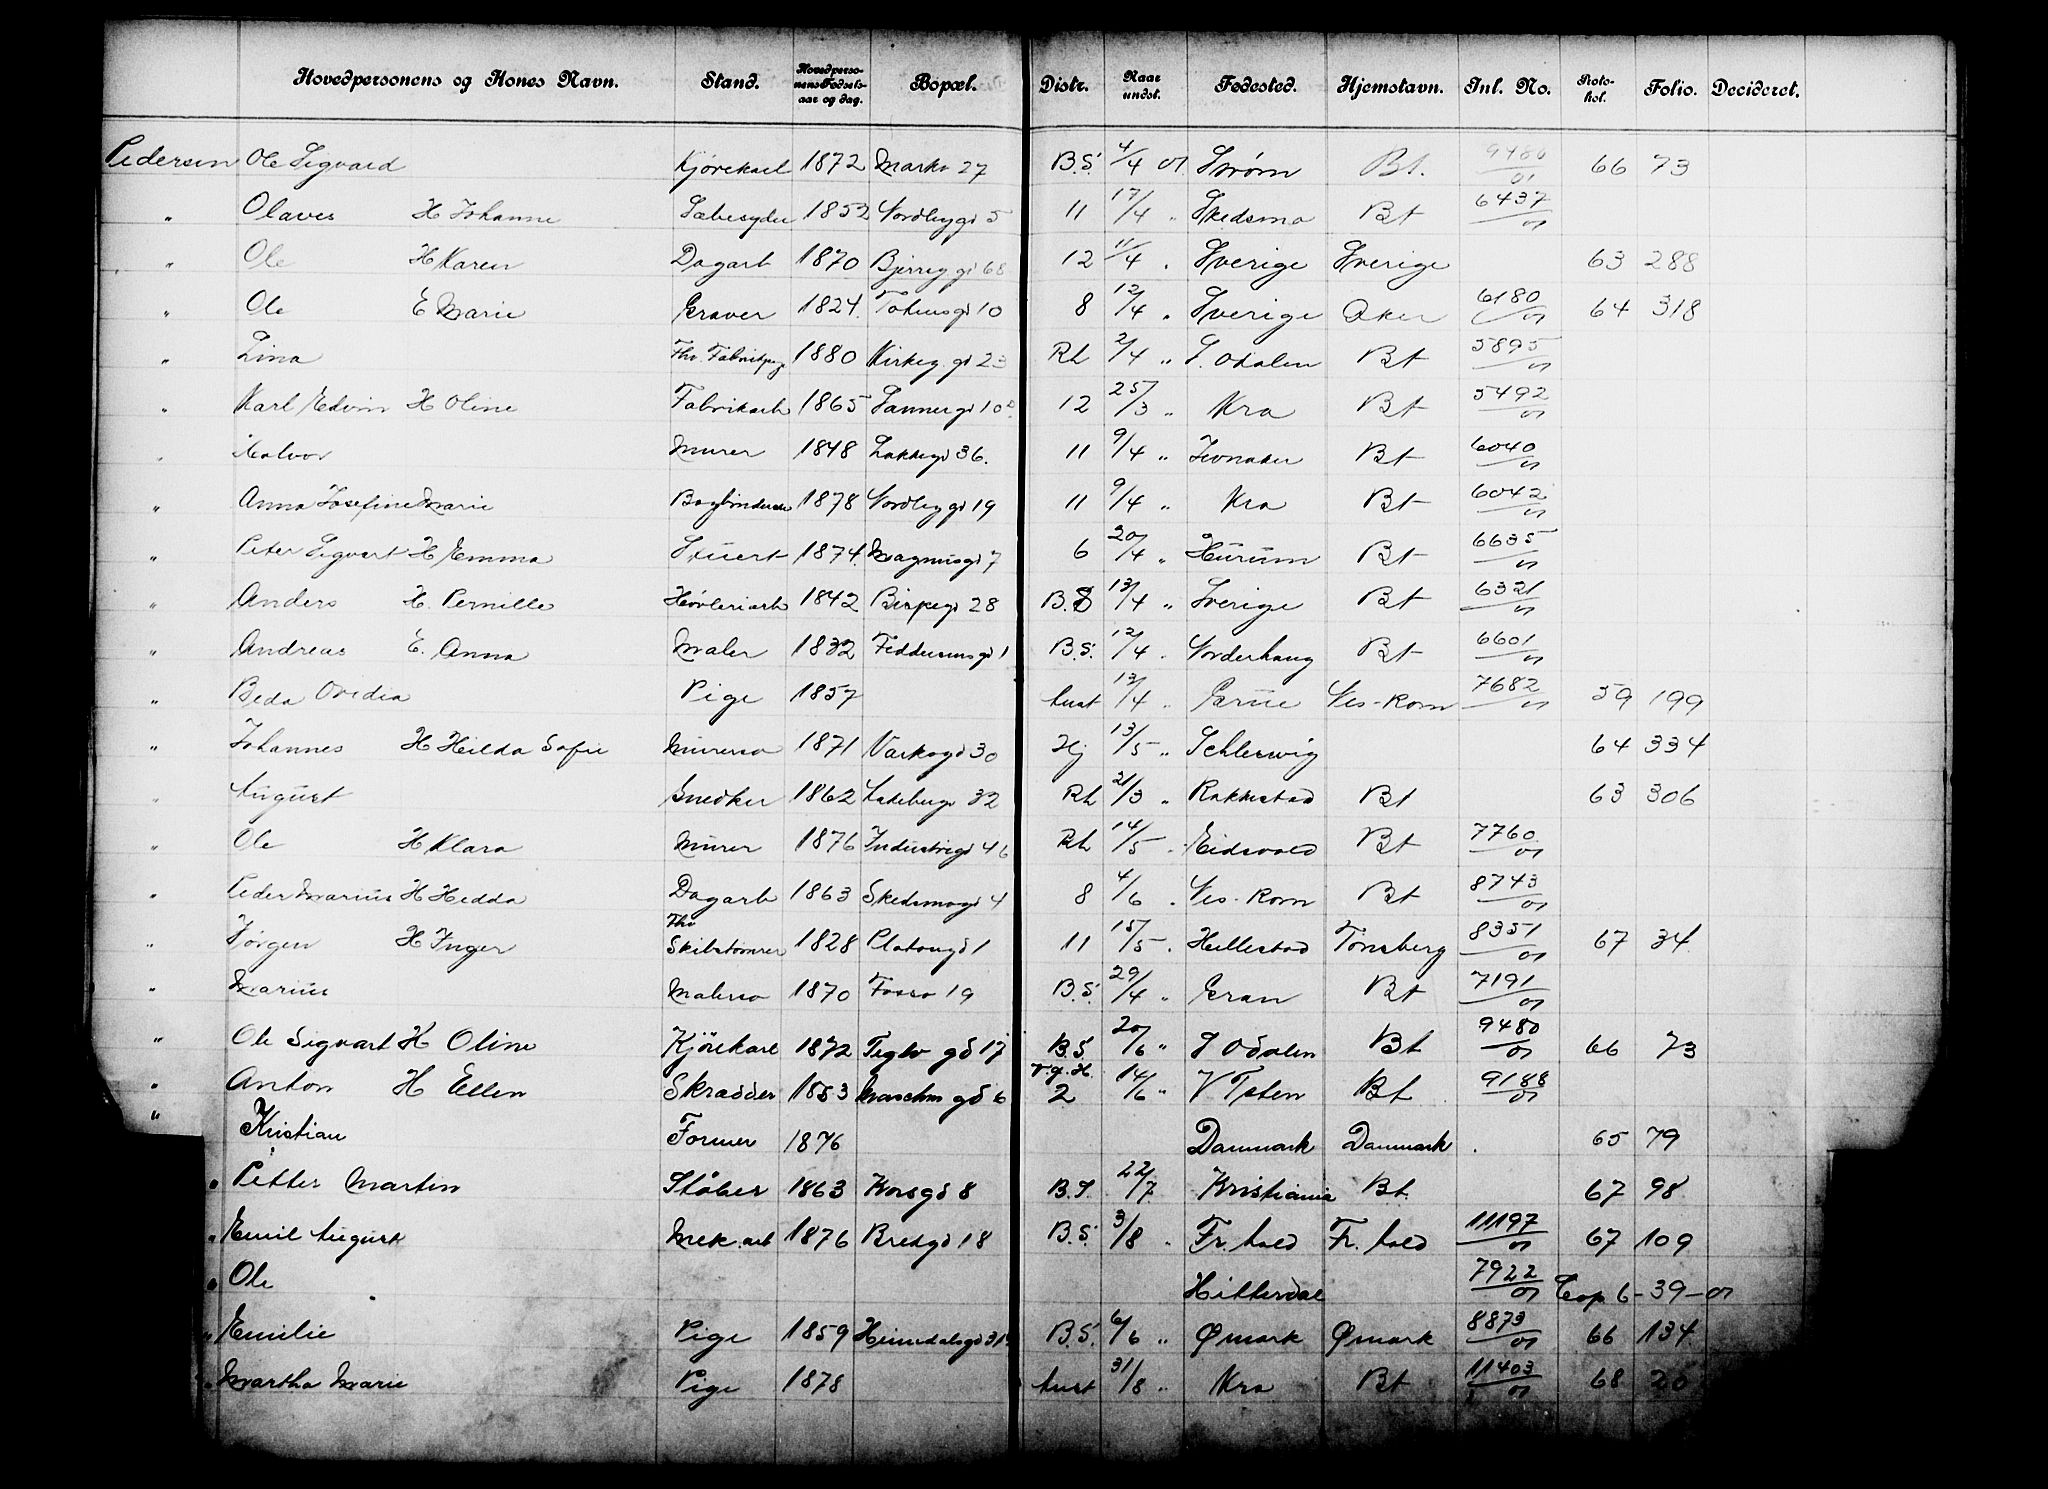 Hovedpersonens og Kones Navn. Stand. Hovedpersonens Fødselsaar og dag. Bopæl. Distr. Naar undst. Fødested. Hjemstavn. Jnl. No. Protokol. Folio. Decideret.
Pedersen Ole Sigvard Kjørekarl 1872 Markv 27 B.S. 4/4 01 Strøm Bt. 9480/01 66 73
" Olaves H Johanne Sæbesyder 1852 Nordbygd 5 11 17/4 " Skedsmo Bt 6437/01
" Ole H Karen Dagarb 1870 Bjerreg gd 68 12 11/4 " Sverige Sverige 63 288
" Ole E Marie Graver 1824 Tøiensgd 10 8 12/4 " Sverige Aker 6180/01 64 318
" Lina Fhv. Fabrikpige 1880 Kirkeg gd 23 Rh 2/4 " S. Odalen Bt 5895/01
" Karl Edvin H Oline Fabrikarb 1865 Sannergd 10 12 25/3 " Kra Bt 5492/01
" Halvor Murer 1848 Lakkegd 36. 11 9/4 " Jevnaker Bt 6040/01
" Anna Josefine Marie Bogbinderske 1878 Nordbygd 19 11 9/4 " Kra Bt 6042/01
" Peter Sigvart H Emma Stuert 1874 Magnusgd 7 6 20/4 " Hurum Bt 6635/01
" Anders H. Pernille Høvleriarb 1842 Bispegd 28 B.S 13/4 " Sverige Bt 6321/01
" Andreas E. Anna Maler 1832 Feddersensgd 1 B.S. 12/4 " Norderhaug Bt 6601/01
" Beda Ovidia Pige 1857 Aust 13/4 " Grue Nes-Rom 7682/01 59 199
" Johannes H Hilda Sofie Murersv 1871 Verksgd 30 Hj 13/5 " Schleswig 64 334
" August Snedker 1862 Ladebergs 32 Rh 21/3 " Rakkestad Bt 63 306
" Ole H Klara Murer 1876 Industrigd 46 Rh 14/5 " Eidsvold Bt 7760/01
" Peder Marius H Hedda Dagarb 1863 Skedsmogd 4 8 4/6 " Nes-Rom Bt 8743/01
" Jørgen H Inger Fhv Skibstømrer 1828 Platousgd 1 11 15/5 " Hillestad Tønsberg 8351/01 67 34
" Marius Malersv 1870 Fossv 19 B.S. 29/4 " Gran Bt 7191/01
" Ole Sigvart H Oline Kjørekarl 1872 Teglv gd 17 B.S. 20/6 " S Odalen Bt 9480/01 66 73
" Anton H Ellen Skrædder 1853 Maschus gd 6 2 14/6 " V Toten Bt 9188/01
" Kristian Former 1876 Danmark Danmark 65 79
" Petter Martin Støber 1863 Korsgd 8 B.S. 22/7 Kristiania Bt 67 98
" Emil August Mek.arb 1876 Bredgd 18 B.S. 3/8 " Fr.hald Fr.hald 11197/01 67 109
" Ole Hitterdal 7922/01 Cop 6-39-01
" Emilie Pige 1859 Heimdalsgd 31 B.S. 6/6 " Ømark Ømark 8873/01 66 134
" Martha Marie Pige 1878 Aust 31/8 " Kra Bt 11403/01 68 20